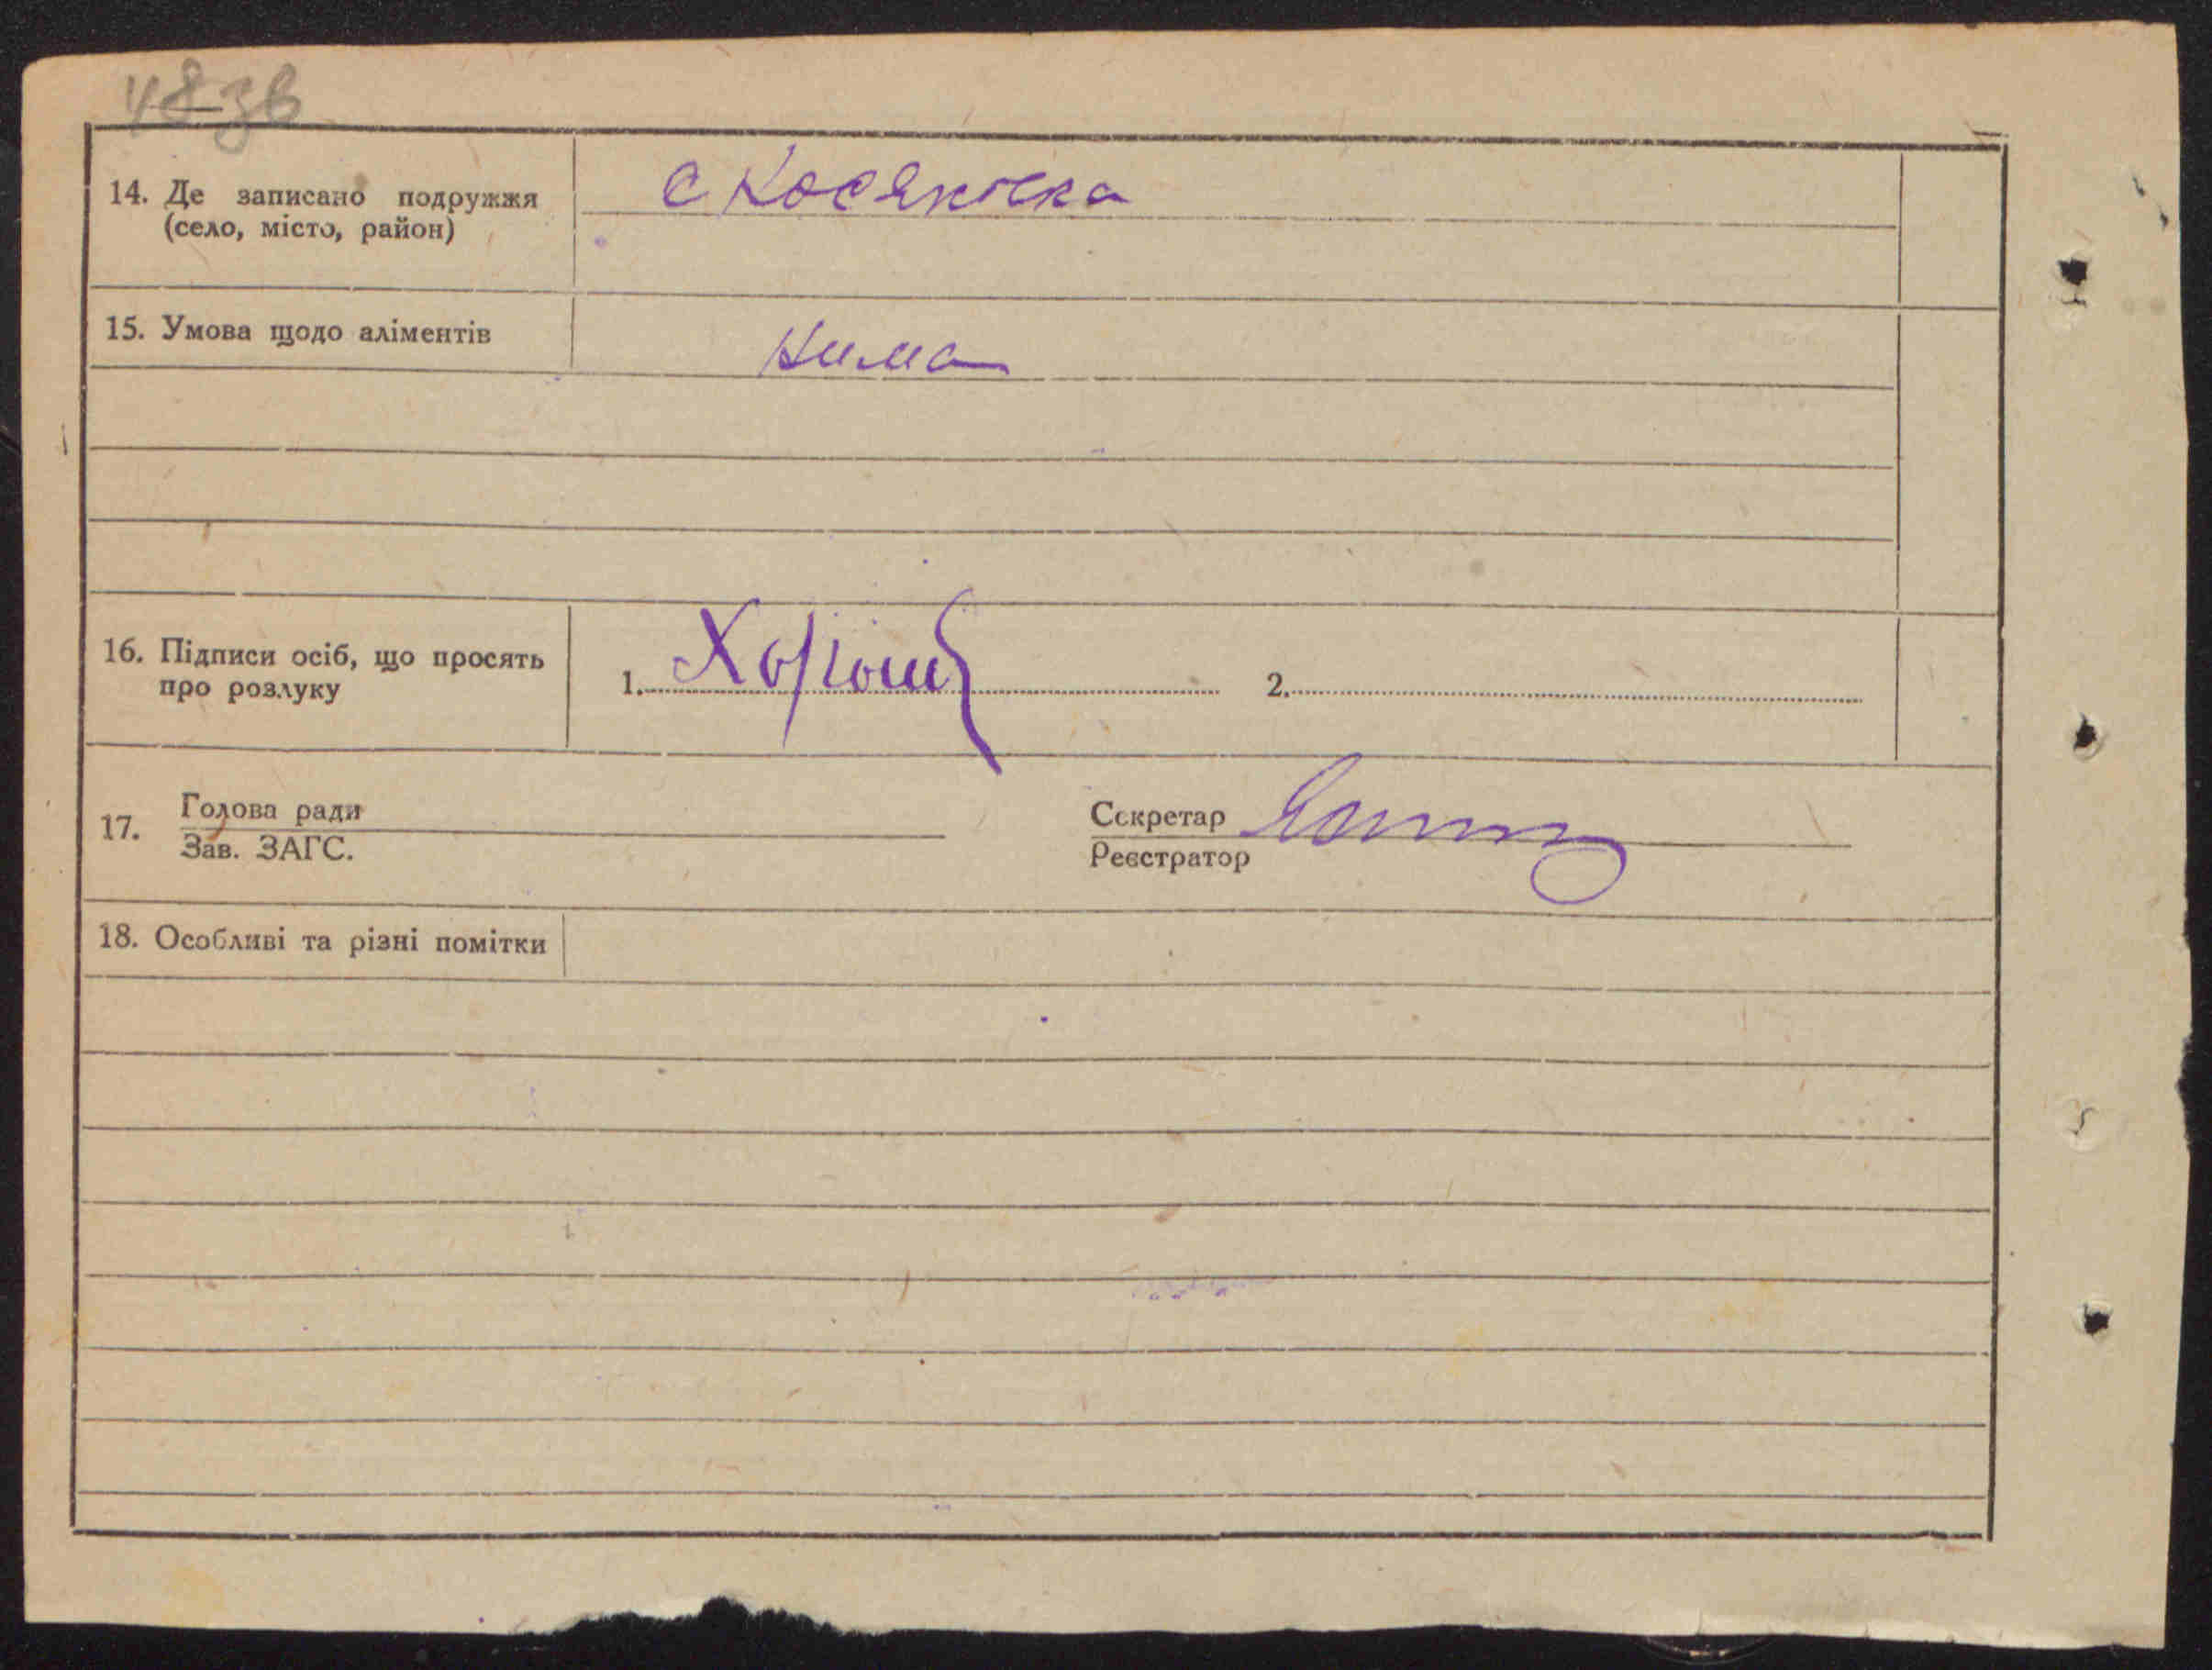 48зв
14. Де записано подружжя
(село, місто, район)
с Косяківка
15. Умова щодо аліментів
нима
16. Підписи осіб, що просять
про розлуку
1. Хорош 2.
17. Голова ради
Зав. ЗАГС.
Секретар
Реєстратор
18. Особливі та різні помітки